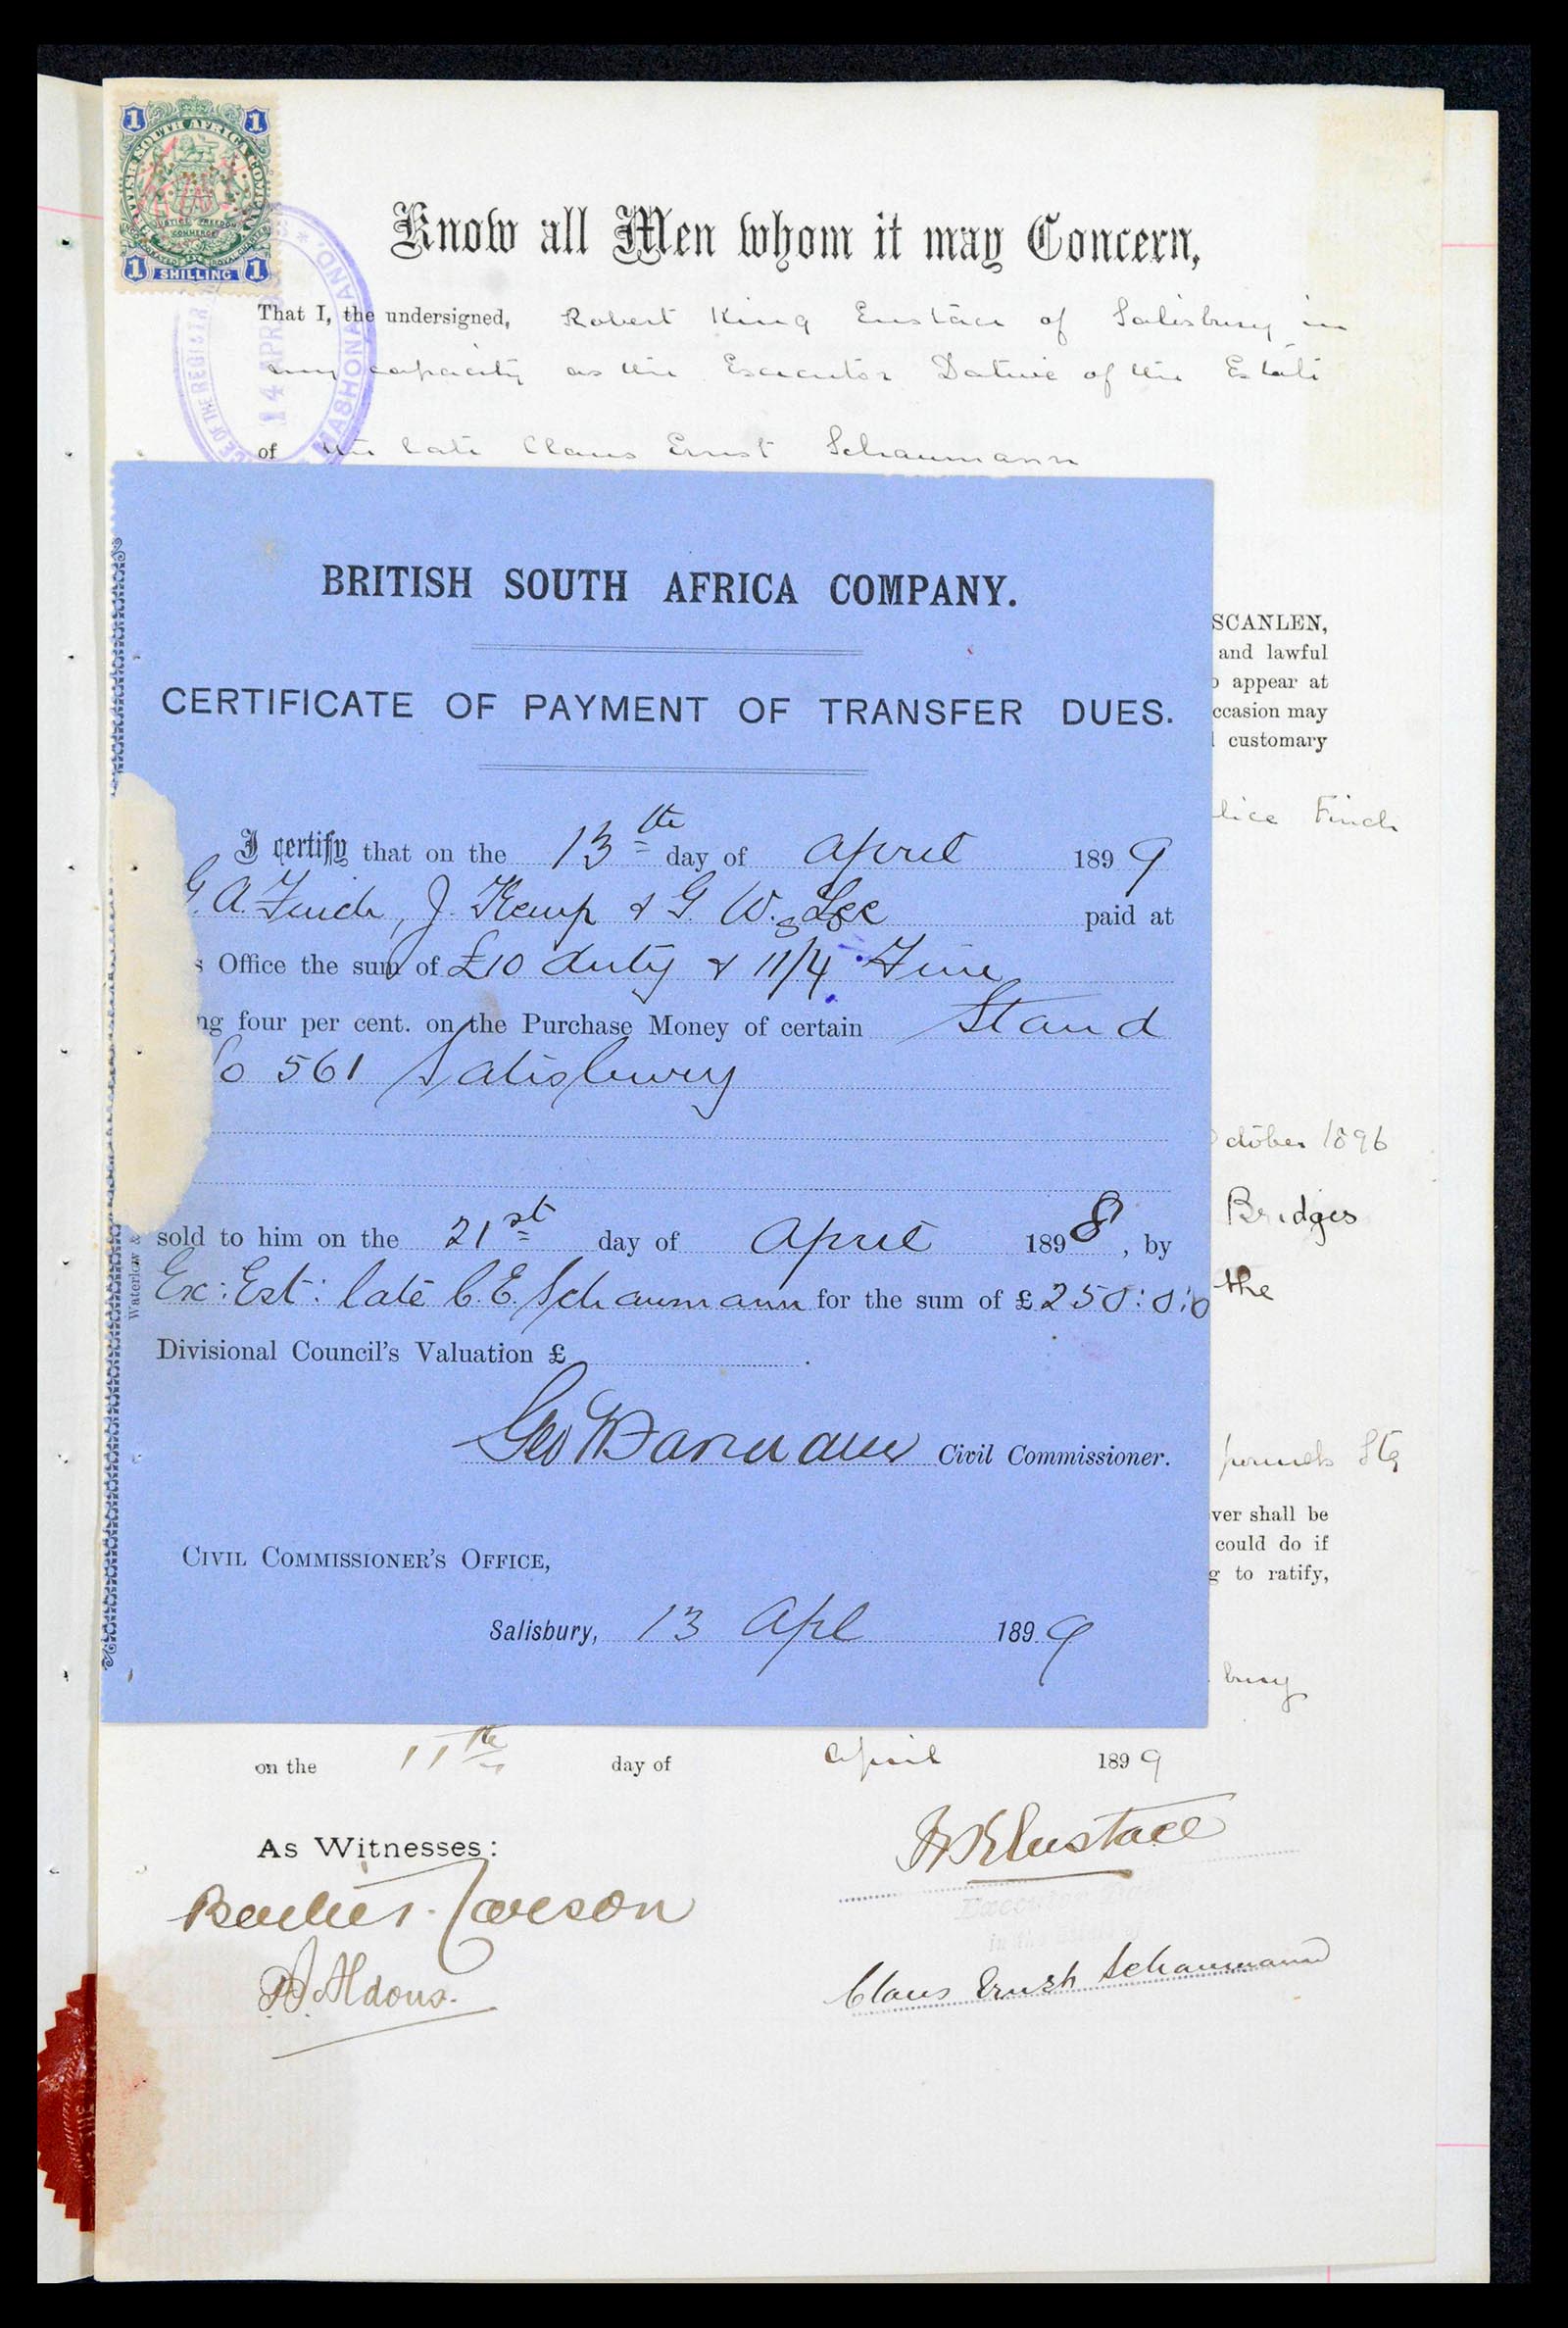 1 1
BRITISH SOUTH AFRICA COMPANY
JUSTICE FREEDOM
COMMERCE
1 SHILLING 1
Know all Men whom it may Concern,
14 APR
MASHONALAND.
CE OF THE REGISTR
That I, the undersigned, Robert King Eustace of Salisbury in
my capacity as the Executor Dative of the Estate
of the late Claus Ernst Schaumann
BRITISH SOUTH AFRICA COMPANY.
CERTIFICATE OF PAYMENT OF TRANSFER DUES.
I certify that on the 13th day of April 1899
G. A. Finch, J. Kemp & G. W. Lee paid at
s Office the sum of £10 duty & 11/4 Fine
ng four per cent. on the Purchase Money of certain Stand
o 561 Salisbury
sold to him on the 21st day of April 1898, by
Ex: Est: late C. E. Schaumann for the sum of £250:0:0
Divisional Council's Valuation £
Civil Commissioner.
CIVIL COMMISSIONER'S OFFICE,
Salisbury, 13 Apl 1899
Waterlow &
SCANLEN,
and lawful
o appear at
ccasion may
customary
lice Finch
ctober 1896
Bridges
the
pounds Stg
ver shall be
could do if
g to ratify,
bury
on the 11th day of April 1899
As Witnesses:
Eustace
Claus Ernst Schaumann
Aldous.